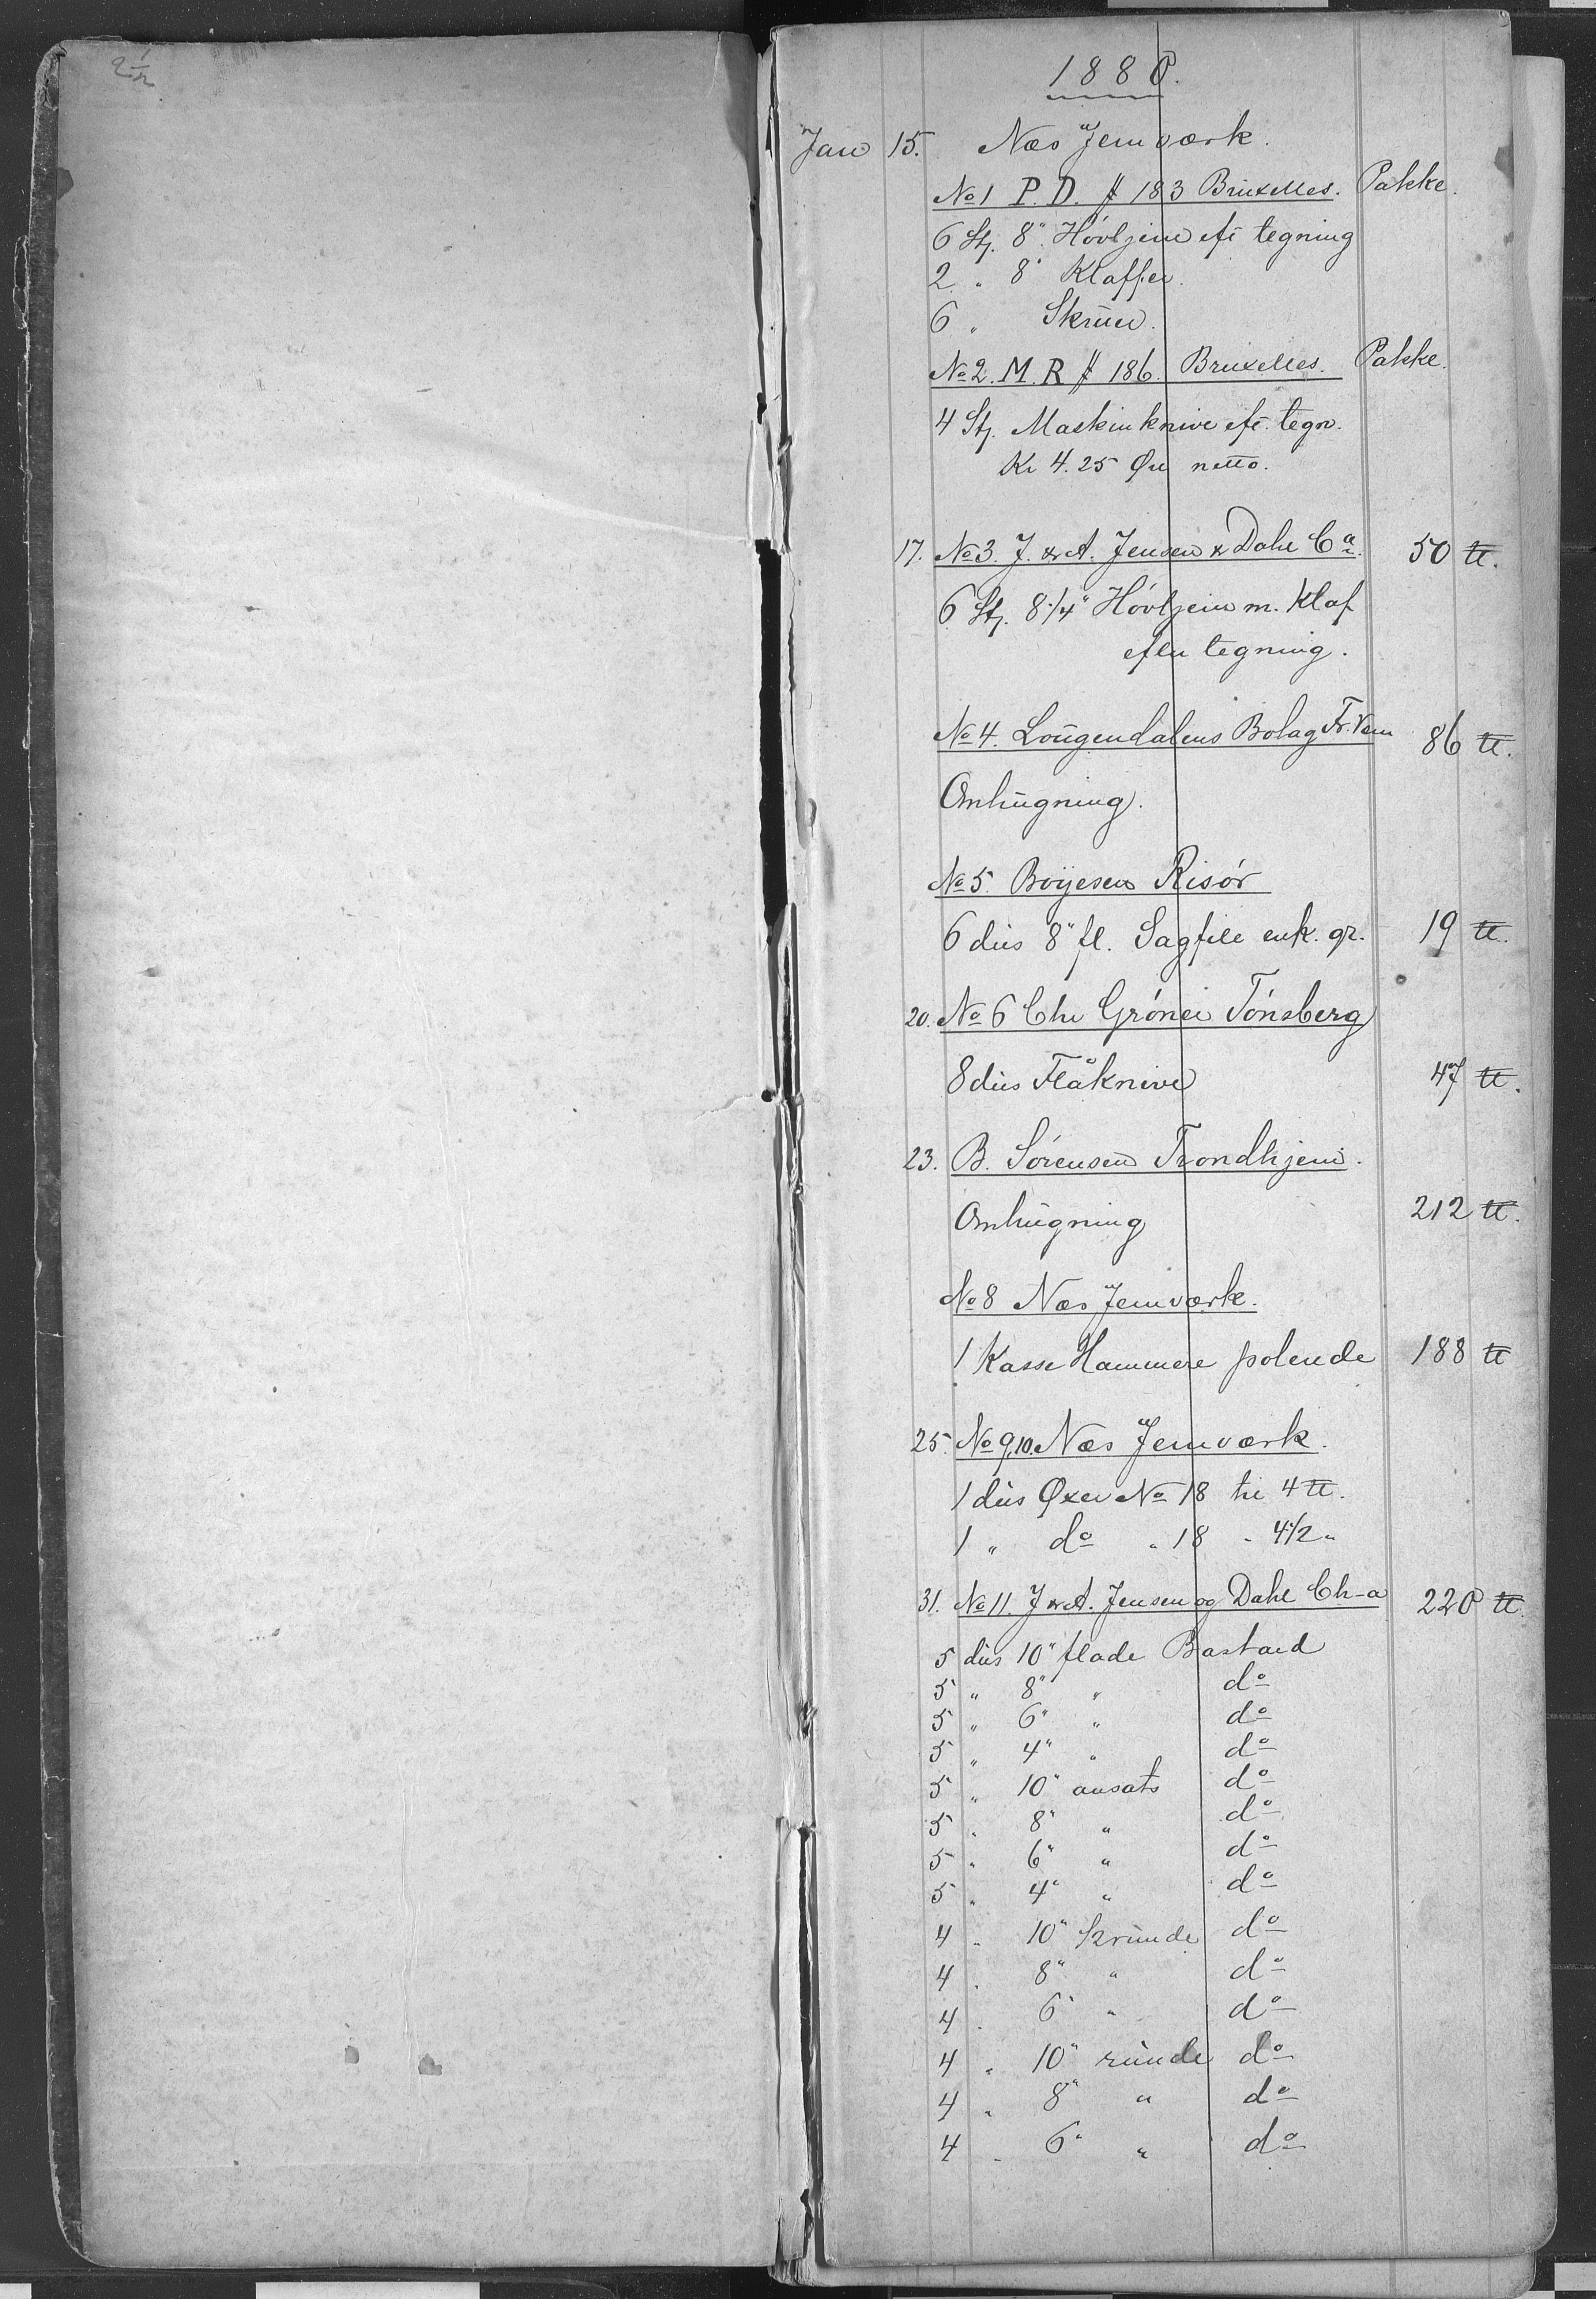 1880.
Jan 15. Næs Jernværk.
No 1 P. D. # 183 Bruxelles. Pakke.
6 Stj. 8" Hövljern eft tegning
2 " 8" Klaffer.
6 " Skruer.
No 2. M. R # 186. Bruxelles. Pakke.
4 Stj. Maskinknive eft. tegn.
Kr 4.25 Øre netto.
17. No 3. J. & A. Jensen & Dahl Ca. 50 ℔.
6 Stj. 8 1/4" Hövljern m. Klaf
efter tegning.
No 4. Lougendalens Bolag Fr.Værn 86 ℔.
Omhugning.
No 5. Boyesen Risör
6 dus 8" fl. Sagfile enk. gr. 19 ℔.
20. No 6 Chr Gröner Tönsberg
8 dus Flåknive 47 ℔.
23. B. Sörensen Trondhjem.
Omhugning 212 ℔.
No 8 Næs Jernværk.
1 Kasse Hammere polerede 188 ℔
25. No 9,10. Næs Jernværk.
1 dus Øxer No 18 tr 4 ℔.
1 " do " 18 " 4 1/2 "
31. No 11. J & A. Jensen og Dahl Ch-a 220 ℔.
5 dus 10" flade Bastard
5 " 8" " do
5 " 6" " do
5 " 4" " do
5 " 10" ansats do
5 " 8" " do
5 " 6" " do
5 " 4" " do
4 " 10" 1/2 runde do
4 " 8" " do
4 " 6" " do
4 " 10" runde do
4 " 8" " do
4 " 6" " do